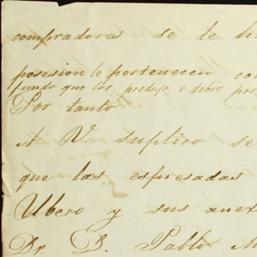 compradoras se le hi
posesion le pertenecen con
fundo que los produjo o debió pro
Por tanto
A V. suplico se
que las espresadas
Ubero y sus anex
Dr. D. Pablo M